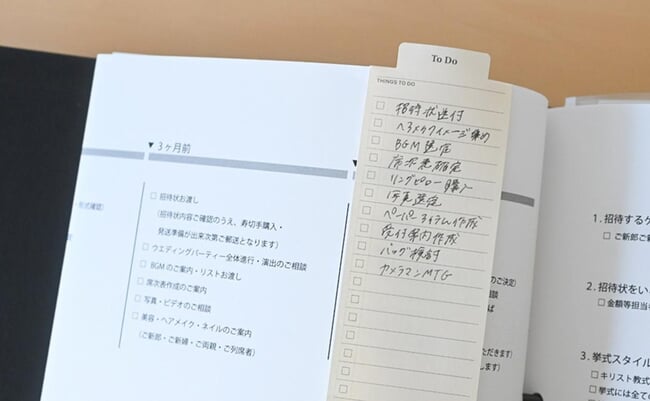 To Do
THINGS TO DO
招待状送付
ヘアメイクイメージ集め
BGM選定
席次表確定
リングピロー購入
写真選定
ペーパーアイテム作成
受付案内作成
バッグ検討
カメラマンMTG
▼3ヶ月前
□招待状お渡し
（招待状内容ご確認のうえ、寿切手購入・
発送準備が出来次第ご郵送となります）
□ウエディングパーティー全体進行・演出のご相談
□BGMのご案内・リストお渡し
□席次表作成のご案内
□写真・ビデオのご相談
□美容・ヘアメイク・ネイルのご案内
（ご新郎・ご新婦・ご両親・ご列席者）
式確認）
のご決定）
ば
ただきます）
1. 招待するゲ
□ご新郎ご新
2. 招待状をい
□金額等担当者
3. 挙式スタイル
□キリスト教式
□挙式には全ての